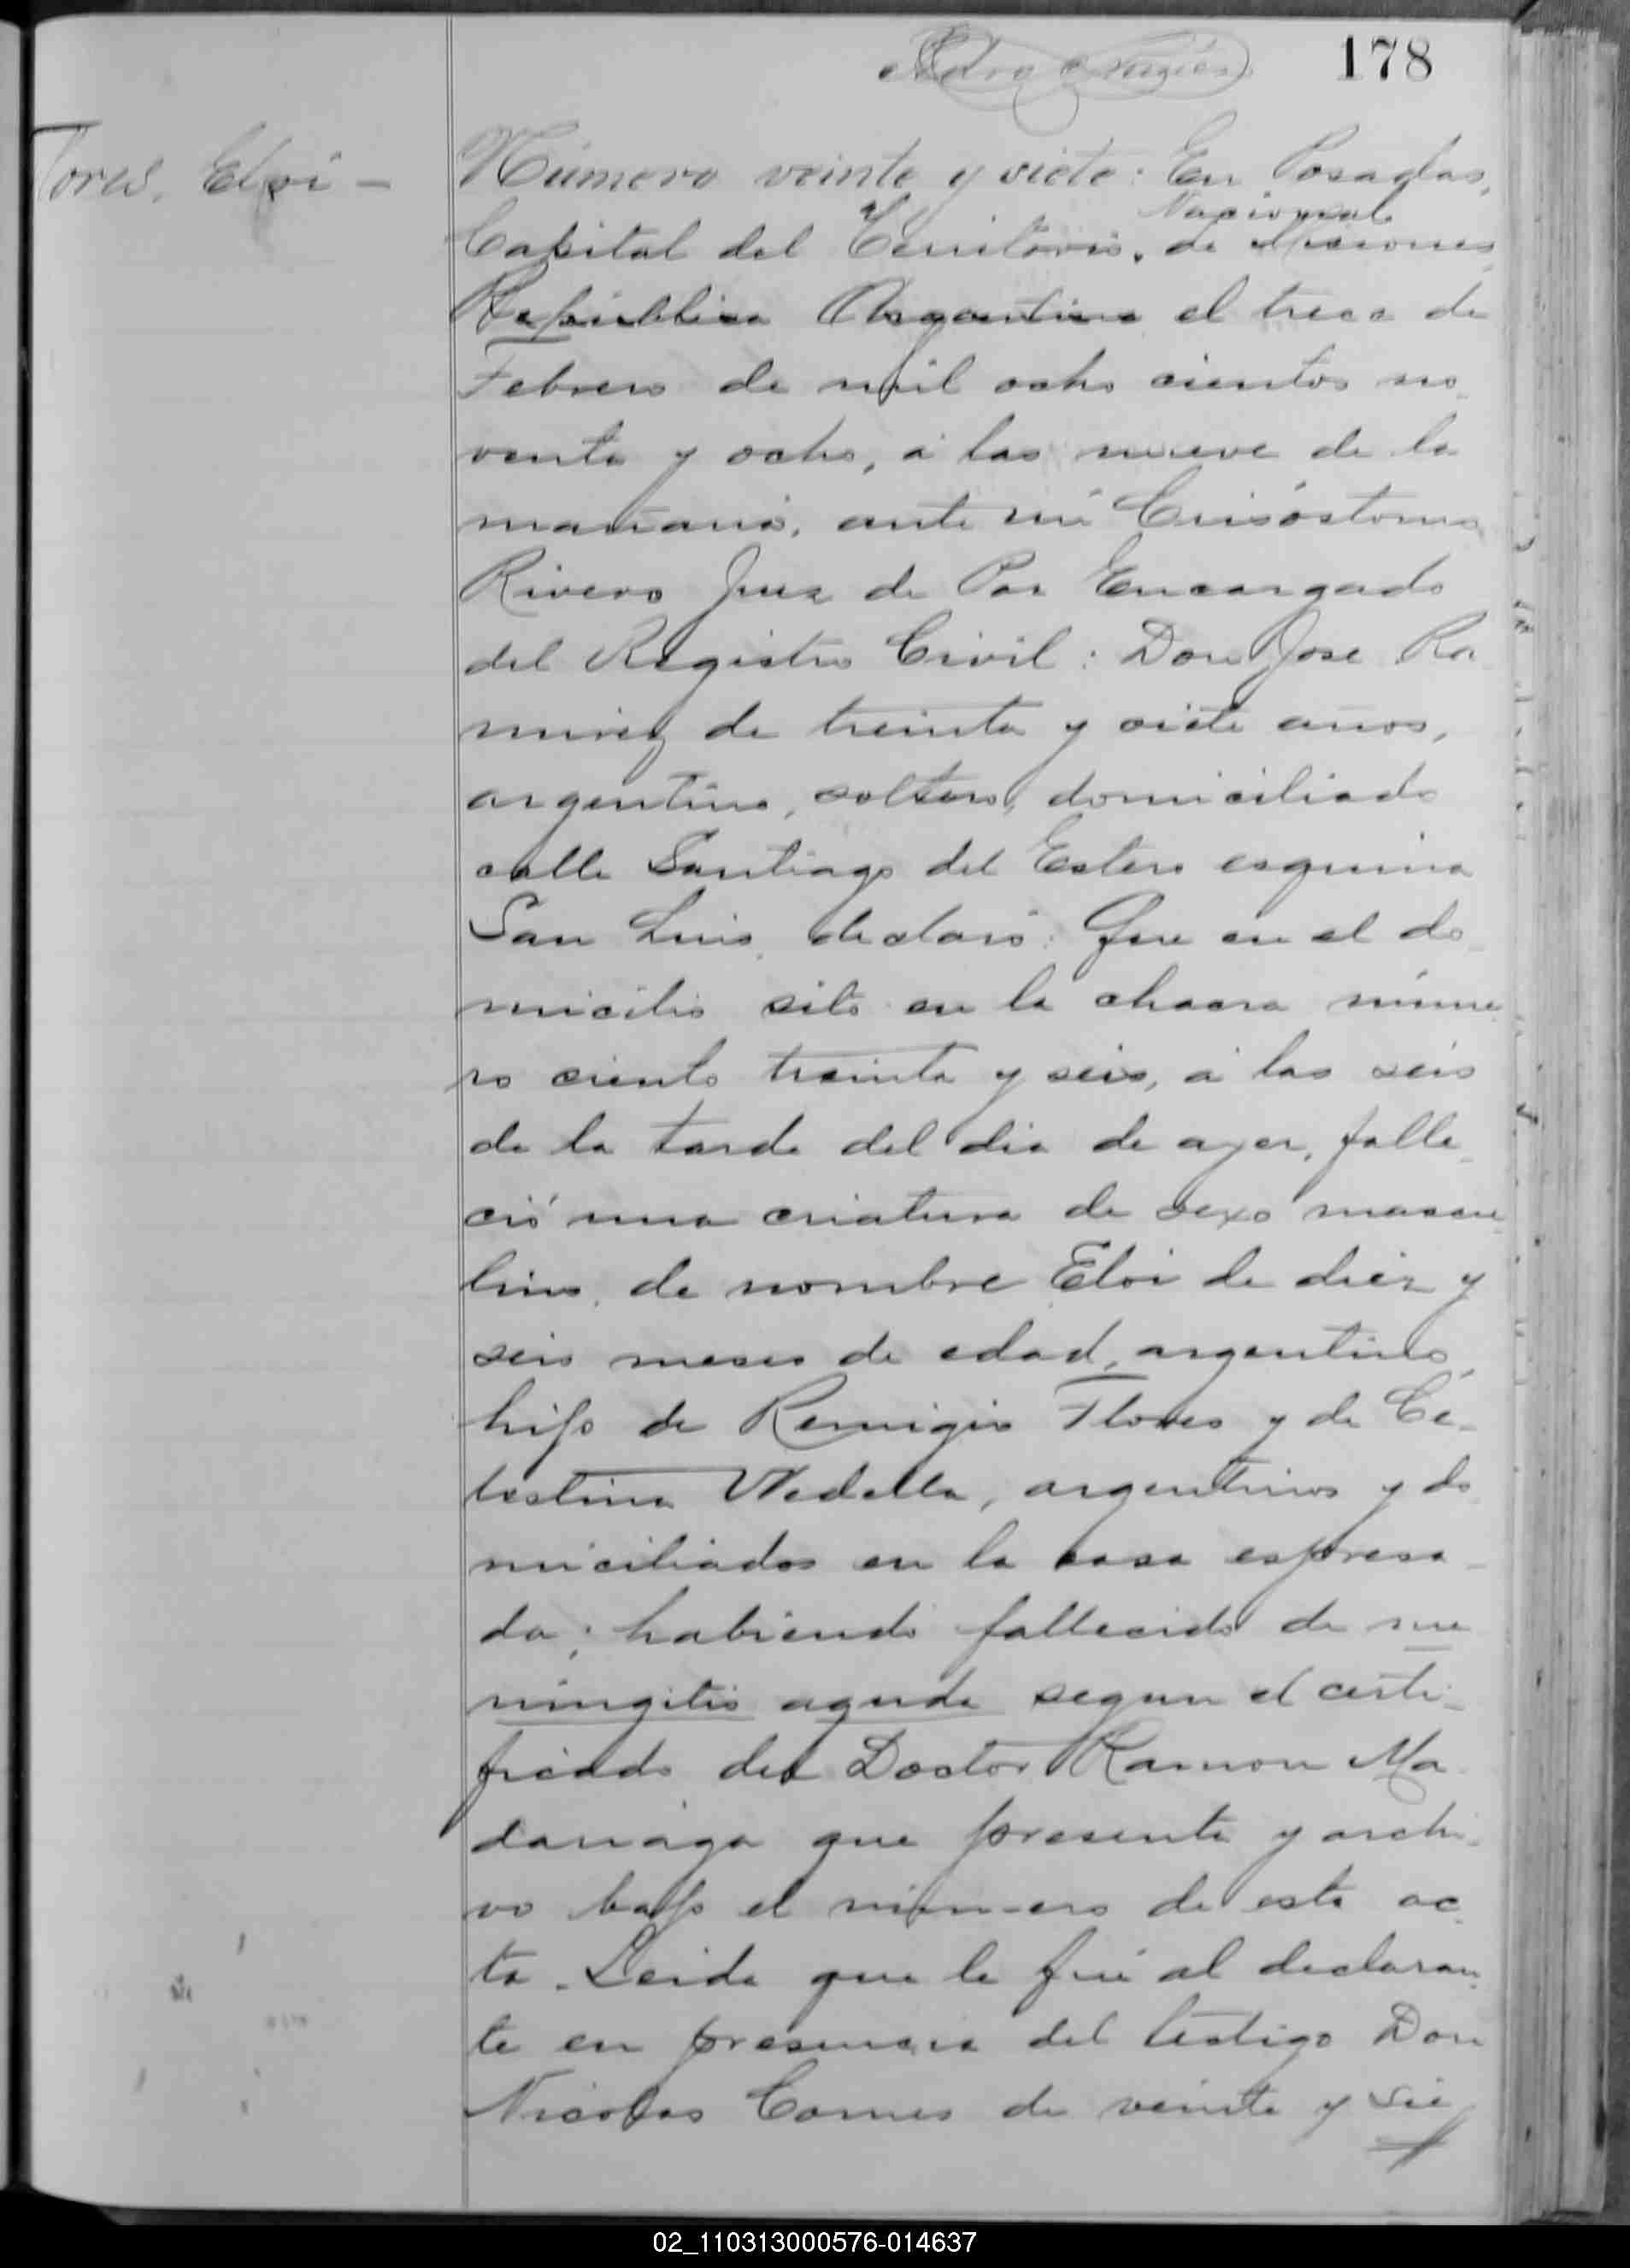 178
Flores, Eloi –
Número veinte y siete: En Posadas,
Nacional
Capital del Territorio, de Misiones
República Argentina el trece de
Febrero de mil ocho cientos no-
venta y ocho, á las nueve de la
mañana, ante mi Crisóstomo
Rivero Juez de Paz Encargado
del Registro Civil: Don Jose Ra
mirez de treinta y siete años,
argentino, soltero, domiciliado
calle Santiago del Estero esquina
San Luis, declaró: Que en el do
micilio sito en la chacra núme
ro ciento treinta y seis, á las seis
de la tarde del dia de ayer, falle-
ció una criatura de sexo mascu
lino, de nombre Eloi de diez y
seis meses de edad, argentino,
hijo de Remigio Flores y de Ce-
lestina, argentinos y do
miciliados en la casa espresa-
da; habiendo fallecido de me
ningitis aguda segun el certi-
ficado del Doctor Ramon Ma
dariaga que presenta y archi-
vo bajo el número de esta ac-
ta. Leida que le fué al declaran-
te en presencia del testigo Don
Nicolas de veinte y sie
02_110313000576-014637